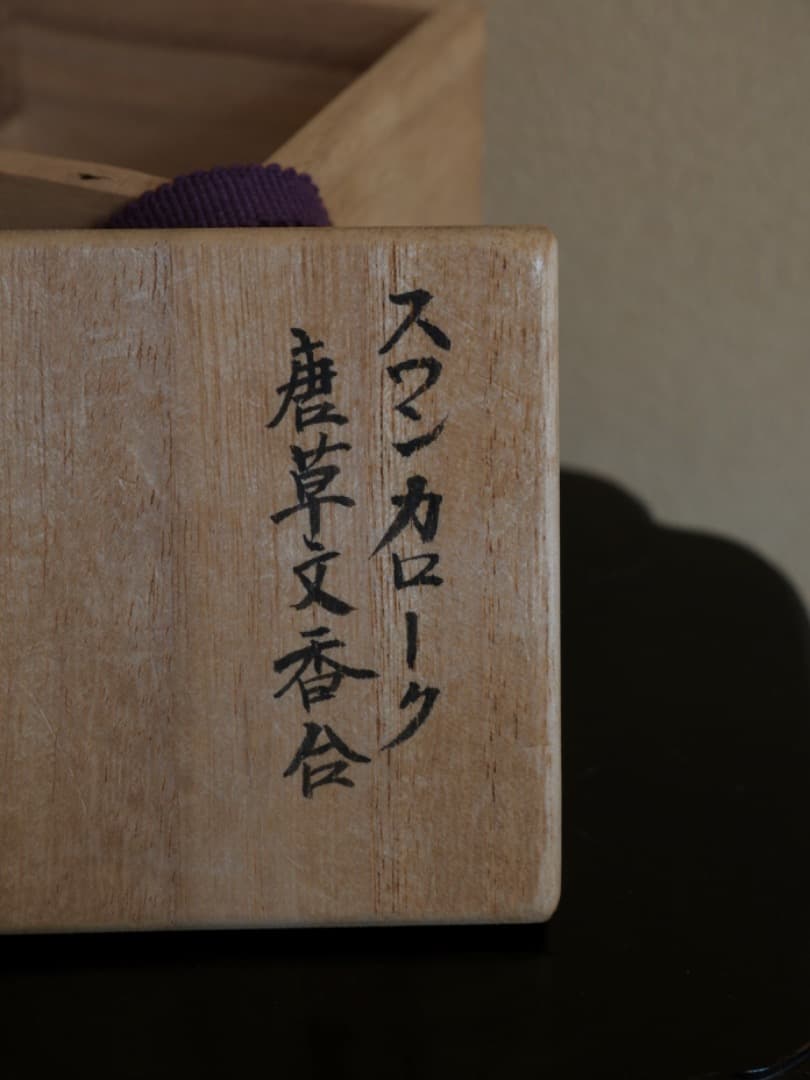 スワンカローク
唐草文香台